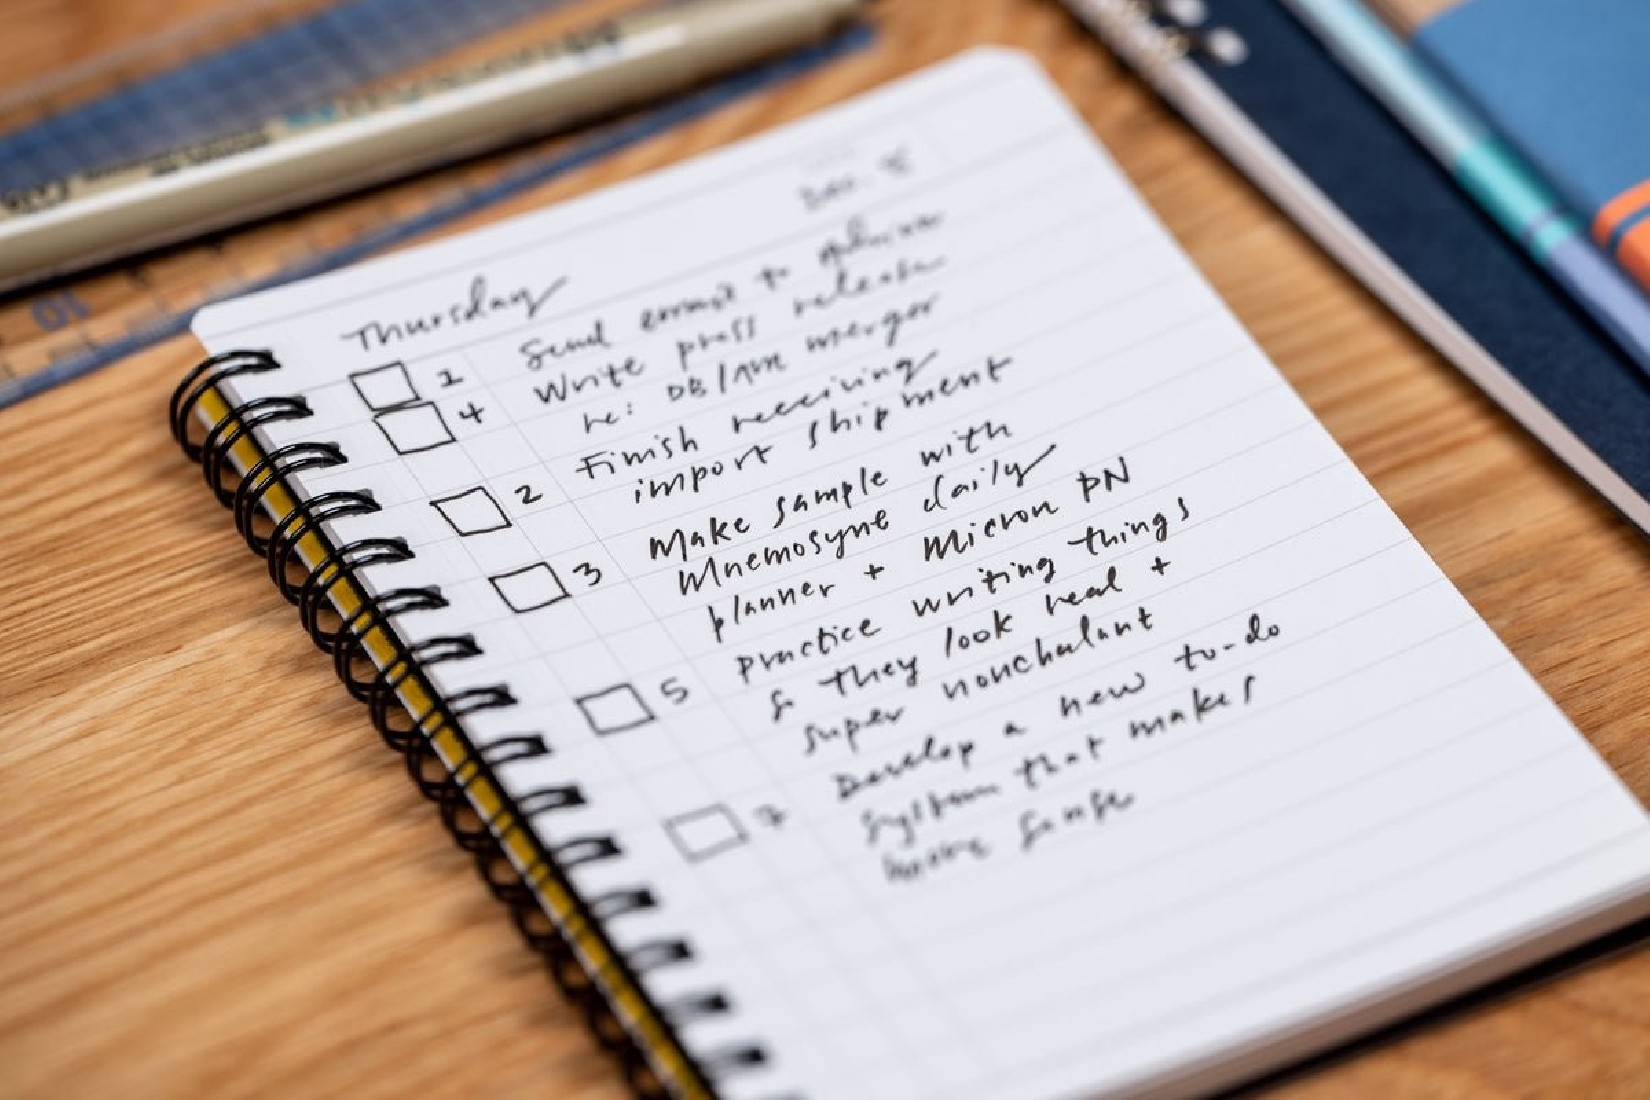 Dec. 5
Thursday
1 Send email to
4 Write press release
re: DB/AM merger
2 Finish receiving
import shipment
3 Make sample with
Mnemosyne daily
planner + Micron PN
5 practice writing things
So they look real +
super nonchalant
7 Develop a new to-do
system that makes
more sense
10